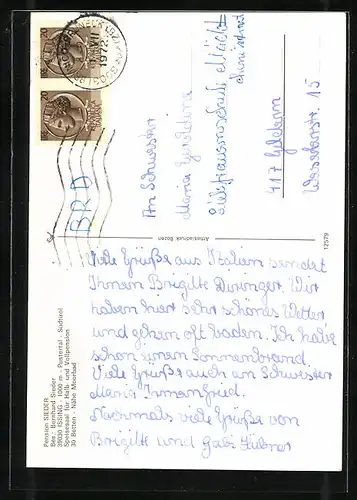 Viele Grüße aus Italien sendet
Ihnen Brigitte Duringer. Wir
haben hier sehr schönes Wetter
und gehen oft baden. Ich habe
schon einen Sonnenbrand.
Viele Grüße auch an Schwester
Maria Irmanfried.
Nochmals viele Grüße von
Brigitte und Gabi Hübner
An Schwester
Maria
417 Geldern
Weserstr. 15
BRD
Pension SIEDER
Bes.: Bernhard Sieder
39030 ISSING - 1000 m - Pustertal - Südtirol
Speisesaal für Halb- und Vollpension
30 Betten - Nähe Moorbad
Athesiadruck Bozen
12579
1972